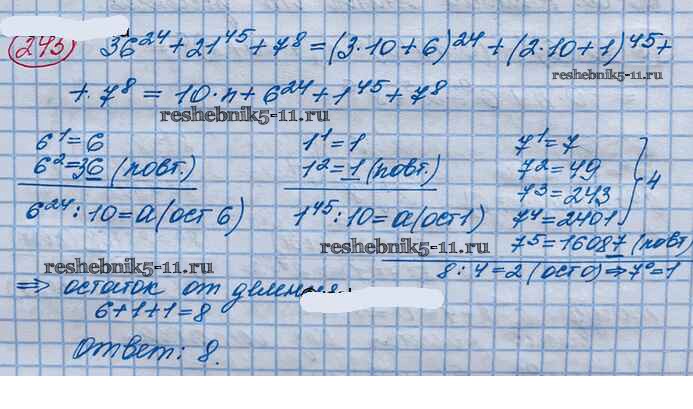 243 36²⁴ + 21⁴⁵ + 7⁸ = (3·10+6)²⁴ + (2·10+1)⁴⁵ +
reshebnik5-11.ru
+ 7⁸ = 10·n + 6²⁴ + 1⁴⁵ + 7⁸
reshebnik5-11.ru
6¹=6
6²=36 (повт.)
6²⁴:10=a(ост 6)
1¹=1
1²=1 (повт.)
1⁴⁵:10=a(ост1)
7¹=7
7²=49
7³=243
7⁴=2401
4
7⁵=16087 (повт)
reshebnik5-11.ru
8:4=2 (ост0)⇒7⁰=1
reshebnik5-11.ru
⇒ остаток от
6+1+1=8
Ответ: 8.